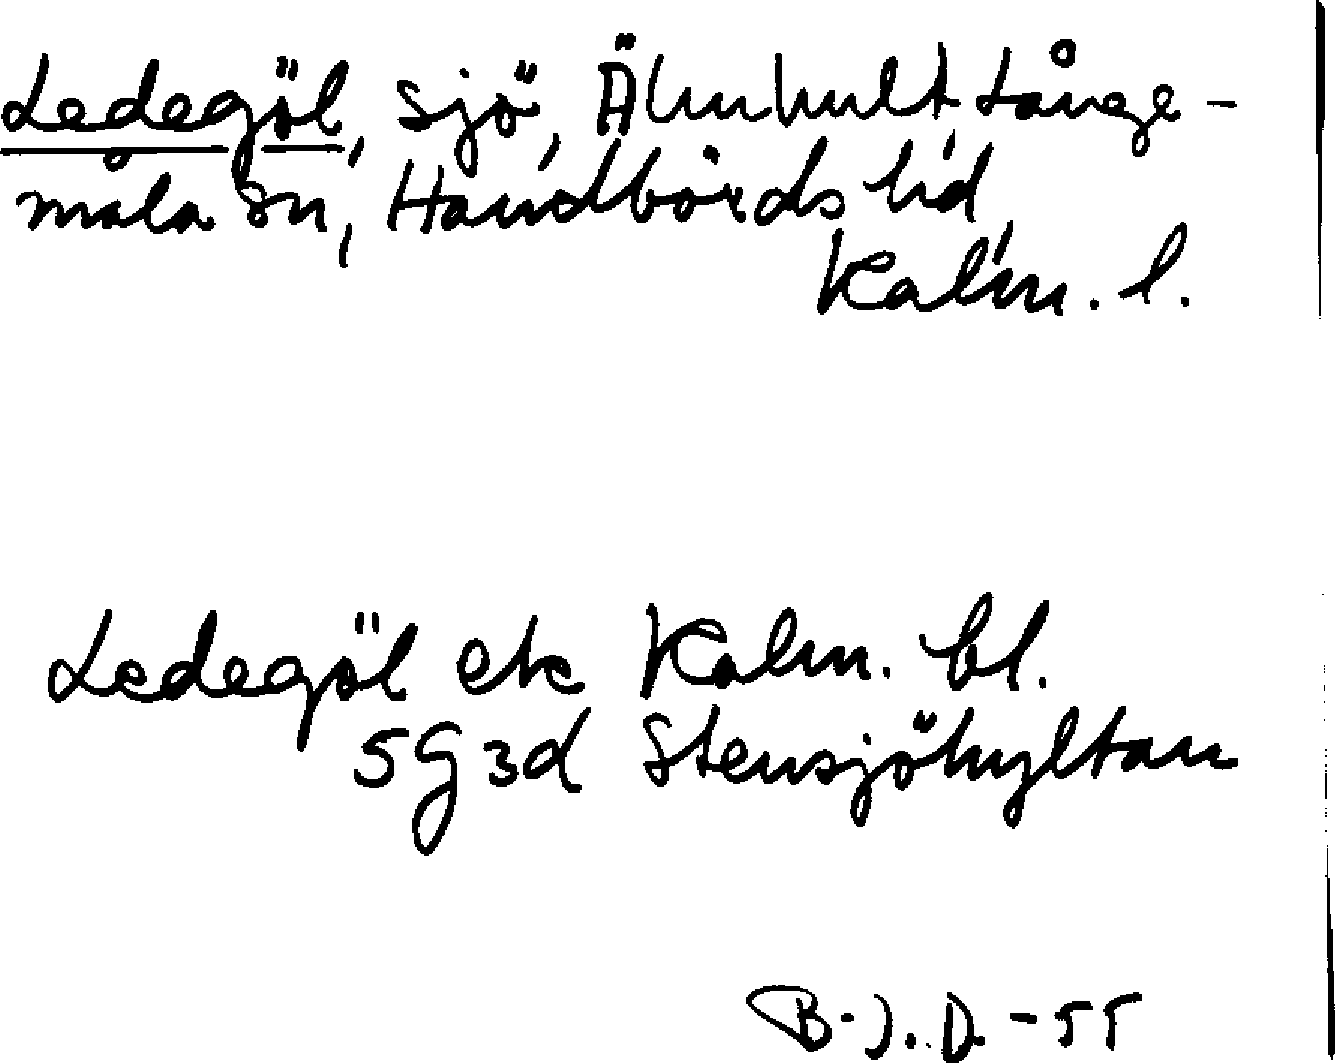 Ledegöl, sjö, Älmhult, Långe-
måla sn, Handbörds hd,
Kalm. l.
Ledegöl ek Kalm. bl.
5G3d Stensjöhyltan
B-J.D. -55